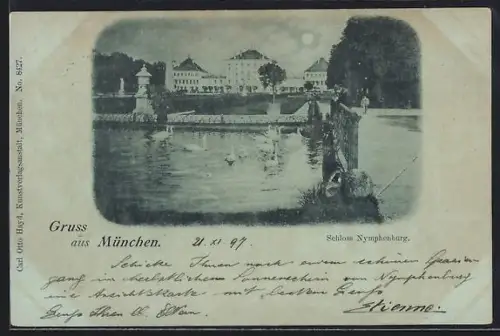 Carl Otto Hayd, Kunstverlagsanstalt, München. No. 8427.
Gruss
aus München.
21. XI. 97.
Schloss Nymphenburg.
Schicke Ihnen nach einem schönen Spazier
gang im herbstlichen Sonnenschein von Nymphenburg
eine Ansichtskarte mit bestem Gruss
Etienne.
Gruss Ihren